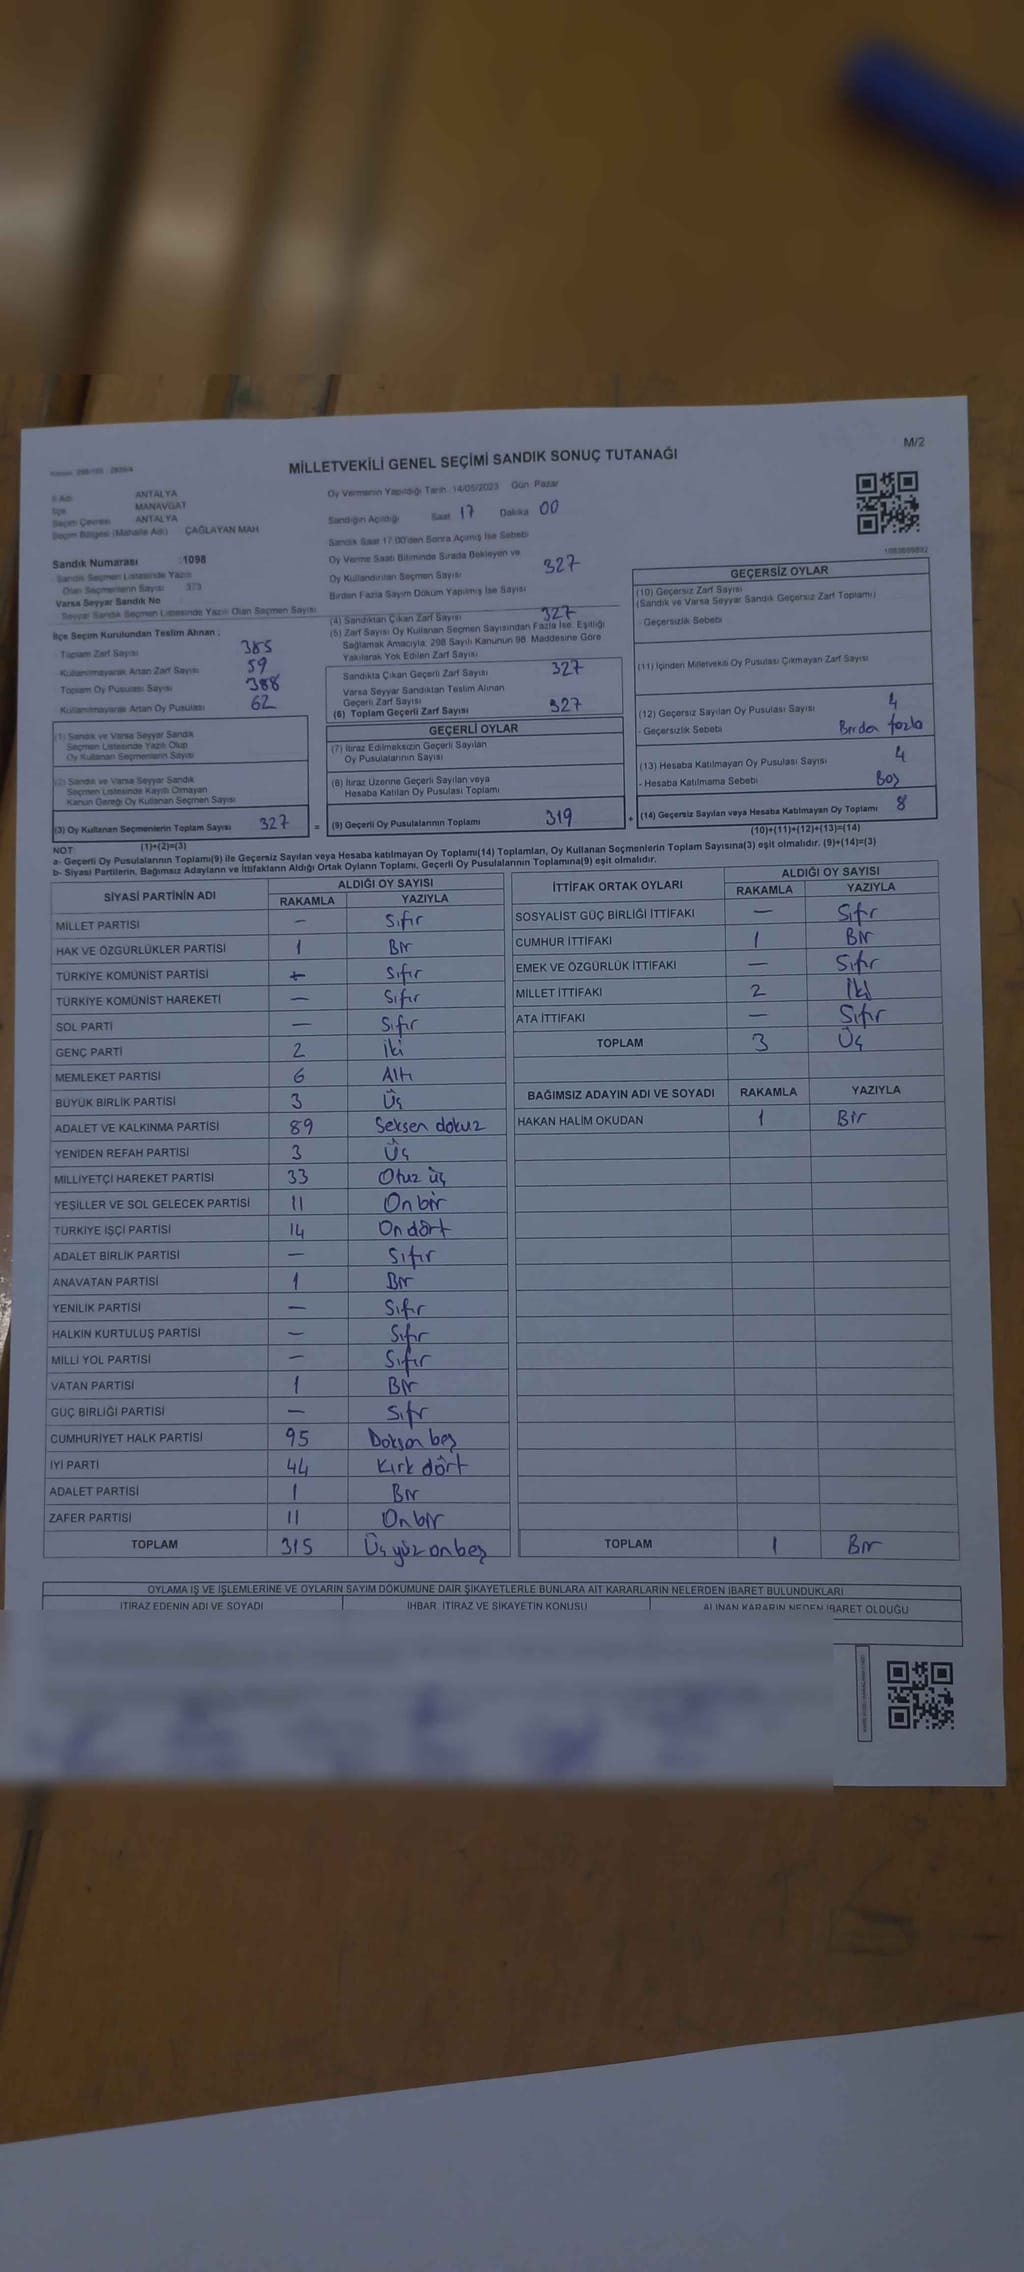 M/2
MİLLETVEKİLİ GENEL SEÇİMİ SANDIK SONUÇ TUTANAĞI
İl Adı ANTALYA
İlçe MANAVGAT
Seçim Çevresi ANTALYA
Seçim Bölgesi (Mahalle Adı) : ÇAĞLAYAN MAH
Sandık Numarası :1098
Sandık Seçmen Listesinde Yazılı
Olan Seçmenlerin Sayısı 373
Varsa Seyyar Sandık No
Seyyar Sandık Seçmen Listesinde Yazılı Olan Seçmen Sayısı
İlçe Seçim Kurulundan Teslim Alınan ;
- Toplam Zarf Sayısı 385
- Kullanılmayarak Artan Zarf Sayısı 59
- Toplam Oy Pusulası Sayısı 388
- Kullanılmayarak Artan Oy Pusulası 62
(1) Sandık ve Varsa Seyyar Sandık
Seçmen Listesinde Yazılı Olup
Oy Kullanan Seçmenlerin Sayısı
(2) Sandık ve Varsa Seyyar Sandık
Seçmen Listesinde Kayıtlı Olmayan
Kanun Gereği Oy Kullanan Seçmen Sayısı
(3) Oy Kullanan Seçmenlerin Toplam Sayısı 327 =
(1)+(2)=(3)
Oy Vermenin Yapıldığı Tarih : 14/05/2023 Gün: Pazar
Sandığın Açıldığı Saat 17 Dakika 00
Sandık Saat 17:00'den Sonra Açılmış İse Sebebi
Oy Verme Saati Bitiminde Sırada Bekleyen ve
Oy Kullandırılan Seçmen Sayısı 327
Birden Fazla Sayım Döküm Yapılmış İse Sayısı
(4) Sandıktan Çıkan Zarf Sayısı 327
(5) Zarf Sayısı Oy Kullanan Seçmen Sayısından Fazla İse, Eşitliği
Sağlamak Amacıyla; 298 Sayılı Kanunun 98. Maddesine Göre
Yakılarak Yok Edilen Zarf Sayısı
Sandıkta Çıkan Geçerli Zarf Sayısı 327
Varsa Seyyar Sandıktan Teslim Alınan
Geçerli Zarf Sayısı
(6) Toplam Geçerli Zarf Sayısı 327
GEÇERLİ OYLAR
(7) İtiraz Edilmeksizin Geçerli Sayılan
Oy Pusulalarının Sayısı
(8) İtiraz Üzerine Geçerli Sayılan veya
Hesaba Katılan Oy Pusulası Toplamı
(9) Geçerli Oy Pusulalarının Toplamı 319 +
GEÇERSİZ OYLAR
(10) Geçersiz Zarf Sayısı
(Sandık ve Varsa Seyyar Sandık Geçersiz Zarf Toplamı)
- Geçersizlik Sebebi
(11) İçinden Milletvekili Oy Pusulası Çıkmayan Zarf Sayısı
(12) Geçersiz Sayılan Oy Pusulası Sayısı 4
- Geçersizlik Sebebi Birden fazla
(13) Hesaba Katılmayan Oy Pusulası Sayısı 4
- Hesaba Katılmama Sebebi Boş
(14) Geçersiz Sayılan veya Hesaba Katılmayan Oy Toplamı 8
(10)+(11)+(12)+(13)=(14)
NOT:
a- Geçerli Oy Pusulalarının Toplamı(9) ile Geçersiz Sayılan veya Hesaba katılmayan Oy Toplamı(14) Toplamları, Oy Kullanan Seçmenlerin Toplam Sayısına(3) eşit olmalıdır. (9)+(14)=(3)
b- Siyasi Partilerin, Bağımsız Adayların ve İttifakların Aldığı Ortak Oyların Toplamı, Geçerli Oy Pusulalarının Toplamına(9) eşit olmalıdır.
SİYASİ PARTİNİN ADI ALDIĞI OY SAYISI
RAKAMLA YAZIYLA
MİLLET PARTİSİ — Sıfır
HAK VE ÖZGÜRLÜKLER PARTİSİ 1 Bir
TÜRKİYE KOMÜNİST PARTİSİ — Sıfır
TÜRKİYE KOMÜNİST HAREKETİ — Sıfır
SOL PARTİ — Sıfır
GENÇ PARTİ 2 İki
MEMLEKET PARTİSİ 6 Altı
BÜYÜK BİRLİK PARTİSİ 3 Üç
ADALET VE KALKINMA PARTİSİ 89 Seksen dokuz
YENİDEN REFAH PARTİSİ 3 Üç
MİLLİYETÇİ HAREKET PARTİSİ 33 Otuz üç
YEŞİLLER VE SOL GELECEK PARTİSİ 11 On bir
TÜRKİYE İŞÇİ PARTİSİ 14 On dört
ADALET BİRLİK PARTİSİ — Sıfır
ANAVATAN PARTİSİ 1 Bir
YENİLİK PARTİSİ — Sıfır
HALKIN KURTULUŞ PARTİSİ — Sıfır
MİLLİ YOL PARTİSİ — Sıfır
VATAN PARTİSİ 1 Bir
GÜÇ BİRLİĞİ PARTİSİ — Sıfır
CUMHURİYET HALK PARTİSİ 95 Doksan beş
İYİ PARTİ 44 Kırk dört
ADALET PARTİSİ 1 Bir
ZAFER PARTİSİ 11 On bir
TOPLAM 315 Üç yüz on beş
İTTİFAK ORTAK OYLARI ALDIĞI OY SAYISI
RAKAMLA YAZIYLA
SOSYALİST GÜÇ BİRLİĞİ İTTİFAKI — Sıfır
CUMHUR İTTİFAKI 1 Bir
EMEK VE ÖZGÜRLÜK İTTİFAKI — Sıfır
MİLLET İTTİFAKI 2 İki
ATA İTTİFAKI — Sıfır
TOPLAM 3 Üç
BAĞIMSIZ ADAYIN ADI VE SOYADI RAKAMLA YAZIYLA
HAKAN HALİM OKUDAN 1 Bir
TOPLAM 1 Bir
OYLAMA İŞ VE İŞLEMLERİNE VE OYLARIN SAYIM DÖKÜMÜNE DAİR ŞİKAYETLERLE BUNLARA AİT KARARLARIN NELERDEN İBARET BULUNDUKLARI
İTİRAZ EDENİN ADI VE SOYADI İHBAR, İTİRAZ VE ŞİKAYETİN KONUSU ALINAN KARARIN NEDEN İBARET OLDUĞU